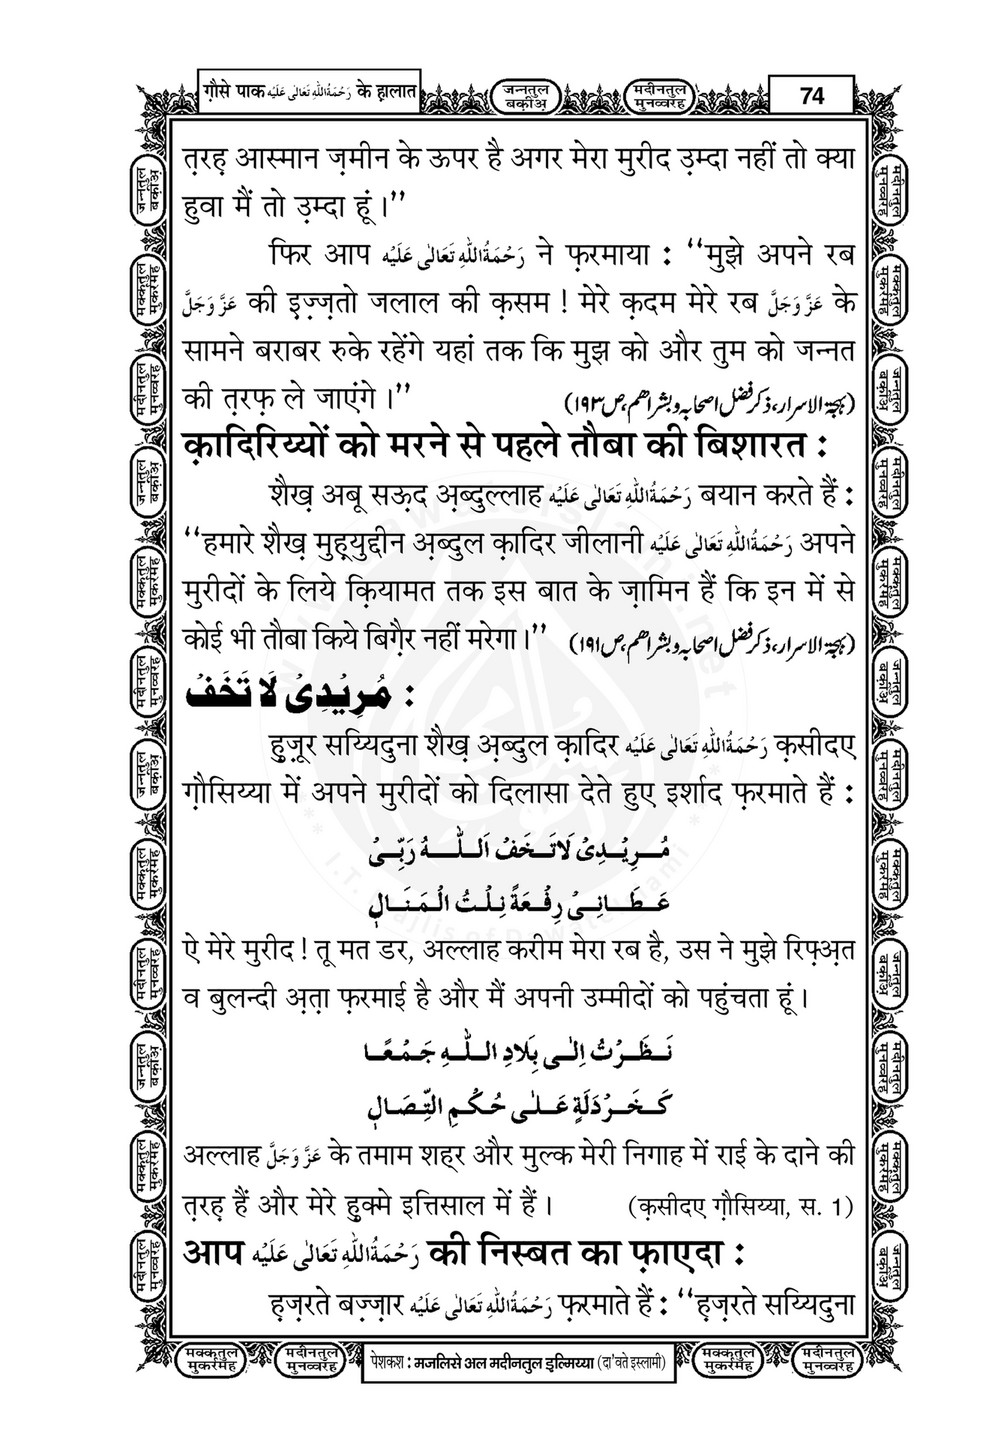 ग़ौसे पाक رَحْمَةُاللّٰهِ تَعَالٰى عَلَيْه के ह़ालात
जन्नतुल बक़ीअ़
मदीनतुल मुनव्वरह
74
त़रह़ आस्मान ज़मीन के ऊपर है अगर मेरा मुरीद उ़म्दा नहीं तो क्या
हुवा मैं तो उ़म्दा हूं।’’
फिर आप رَحْمَةُاللّٰهِ تَعَالٰى عَلَيْه ने फ़रमाया : ‘‘मुझे अपने रब
عَزَّ وَجَلَّ की इ़ज़्ज़तो जलाल की क़सम ! मेरे क़दम मेरे रब عَزَّ وَجَلَّ के
सामने बराबर रुके रहेंगे यहां तक कि मुझ को और तुम को जन्नत
की त़रफ़ ले जाएंगे।’’ (بهجة الاسرار، ذكر فضل اصحابه و بشراهم، ص١٩٣)
क़ादिरिय्यों को मरने से पहले तौबा की बिशारत :
शैख़ अबू सऊ़द अ़ब्दुल्लाह رَحْمَةُاللّٰهِ تَعَالٰى عَلَيْه बयान करते हैं :
‘‘हमारे शैख़ मुह़्युद्दीन अ़ब्दुल क़ादिर जीलानी رَحْمَةُاللّٰهِ تَعَالٰى عَلَيْه अपने
मुरीदों के लिये क़ियामत तक इस बात के ज़ामिन हैं कि इन में से
कोई भी तौबा किये बिग़ैर नहीं मरेगा।’’ (بهجة الاسرار، ذكر فضل اصحابه و بشراهم، ص١٩١)
مُرِيْدِىْ لَا تَخَفْ :
हुज़ूर सय्यिदुना शैख़ अ़ब्दुल क़ादिर رَحْمَةُاللّٰهِ تَعَالٰى عَلَيْه क़सीदए
ग़ौसिय्या में अपने मुरीदों को दिलासा देते हुए इर्शाद फ़रमाते हैं :
مُرِيْدِىْ لَاتَخَفْ اَللّٰهُ رَبِّىْ
عَطَانِىْ رِفْعَةً نِلْتُ الْمَنَالِ
ऐ मेरे मुरीद ! तू मत डर, अल्लाह करीम मेरा रब है, उस ने मुझे रिफ़्अ़त
व बुलन्दी अ़त़ा फ़रमाई है और मैं अपनी उम्मीदों को पहुंचता हूं।
نَظَرْتُ اِلٰى بِلَادِ اللّٰهِ جَمْعًا
كَخَرْدَلَةٍ عَلٰى حُكْمِ التِّصَالِ
अल्लाह عَزَّ وَجَلَّ के तमाम शहर और मुल्क मेरी निगाह में राई के दाने की
त़रह़ हैं और मेरे हुक्मे इत्तिसाल में हैं। (क़सीदए ग़ौसिय्या, स. 1)
आप رَحْمَةُاللّٰهِ تَعَالٰى عَلَيْه की निस्बत का फ़ाएदा :
ह़ज़रते बज़्ज़ार رَحْمَةُاللّٰهِ تَعَالٰى عَلَيْه फ़रमाते हैं : ‘‘ह़ज़रते सय्यिदुना
मक्कतुल मुकर्रमह
मदीनतुल मुनव्वरह
पेशकश : मजलिसे अल मदीनतुल इ़ल्मिय्या (दा'वते इस्लामी)
मक्कतुल मुकर्रमह
मदीनतुल मुनव्वरह